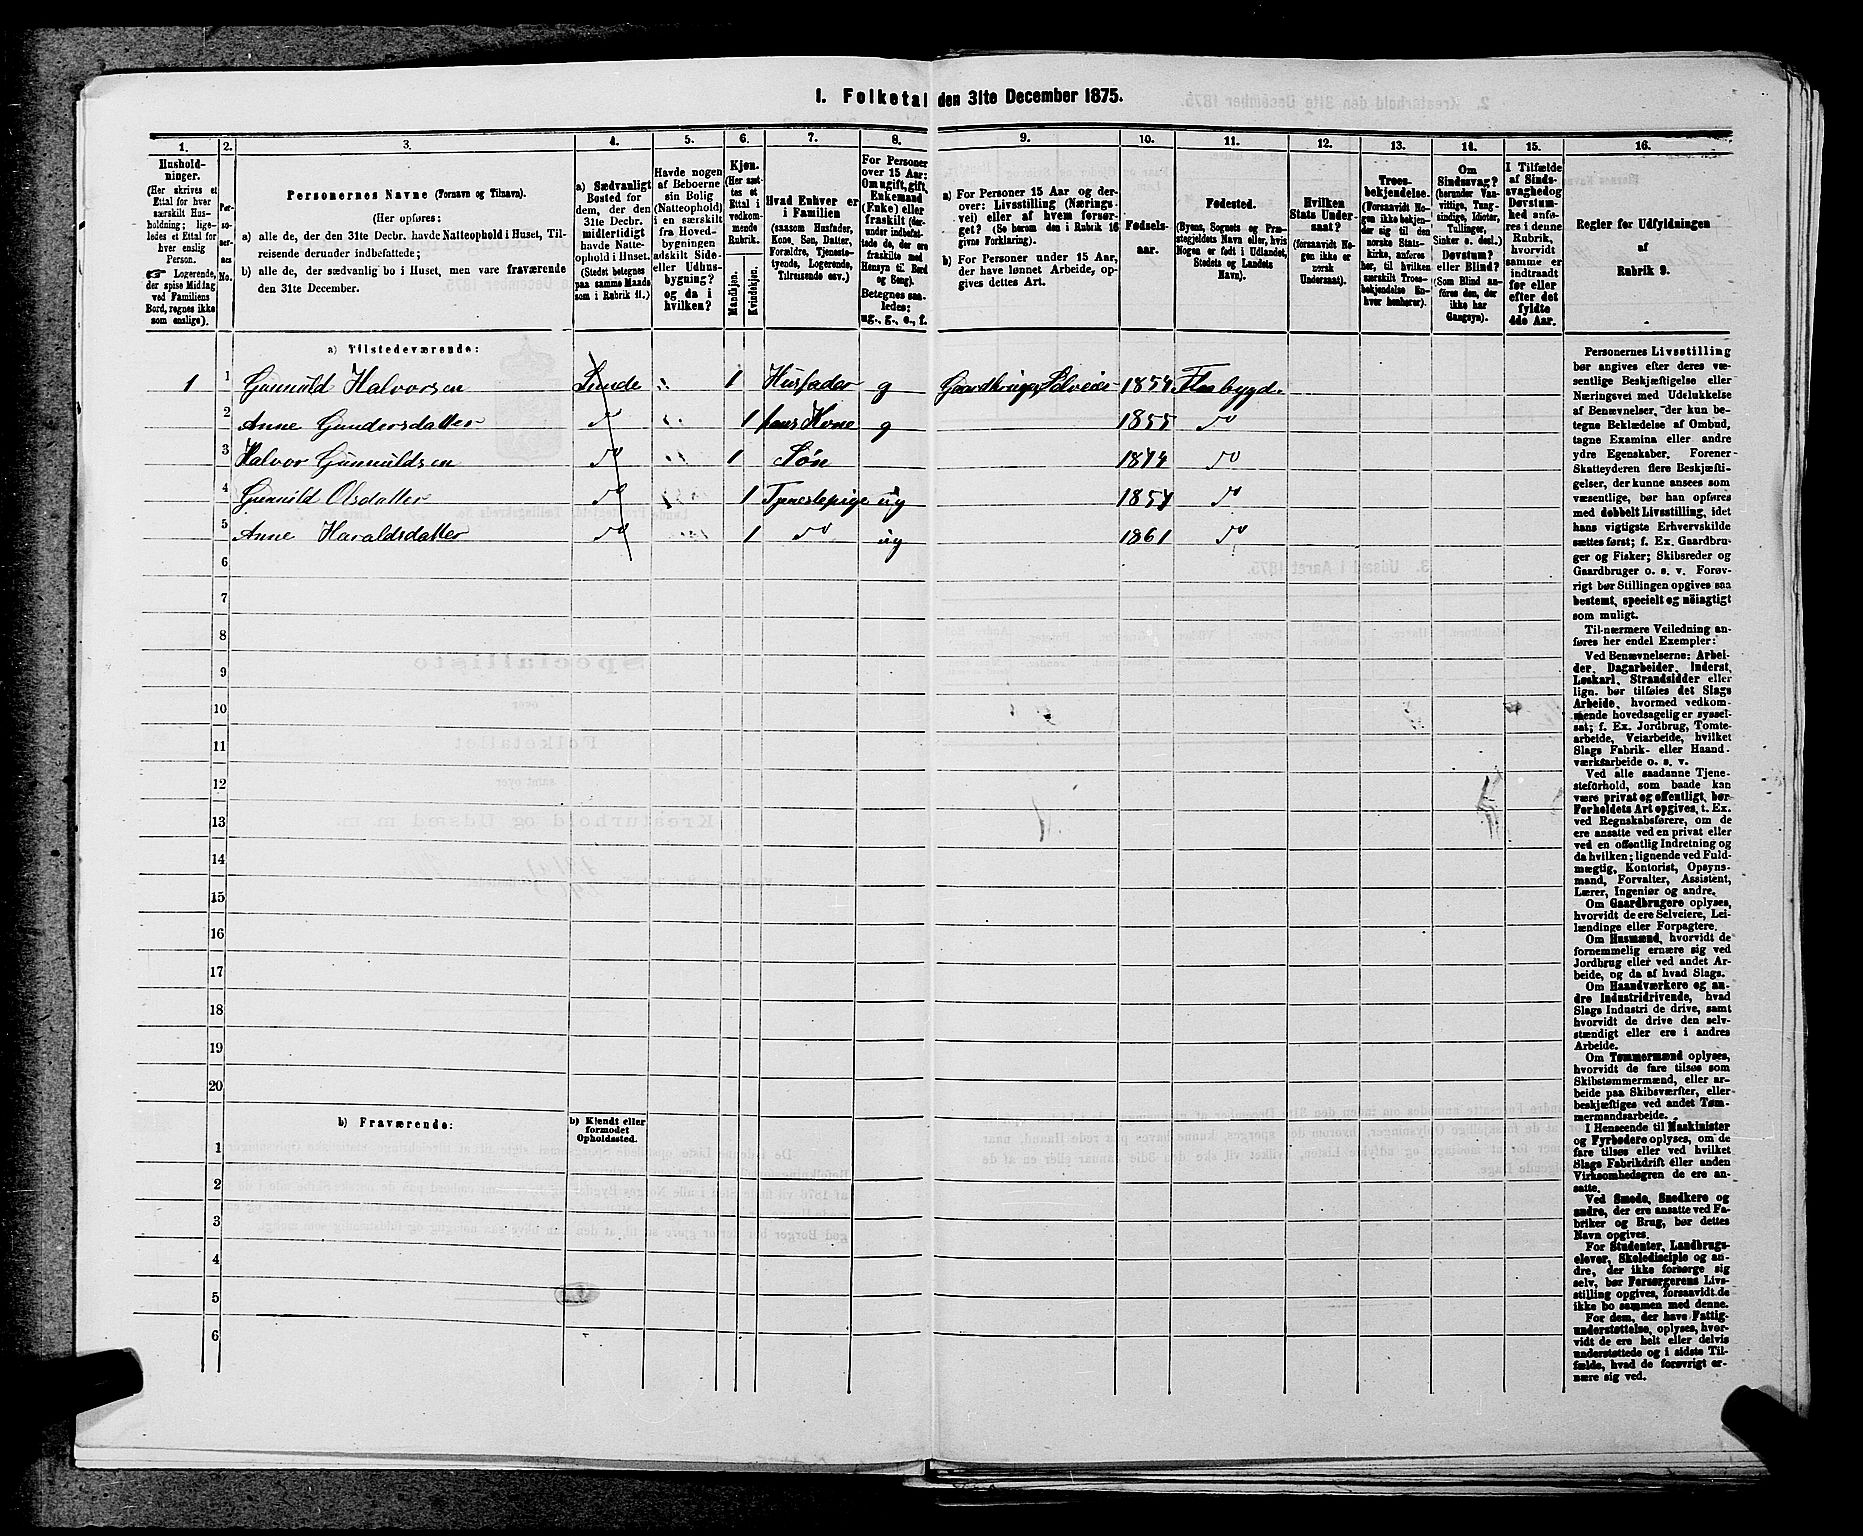 1. Folketal den 31te December 1875.
1. 2. 3. 4. 5. 6. 7. 8. 9. 10. 11. 12. 13. 14. 15. 16.
Hushold-
ninger.
(Her skrives et
Ettal for hver
særskilt Hus-
holdning; lige-
ledes et Ettal for
hver enslig
Person.
☞ Logerende,
der spise Middag
ved Familiens
Bord, regnes ikke
som enslige).
Per-
so-
ner-
nes
No.
Personernes Navne (Fornavn og Tilnavn).
(Her opføres:
a) alle de, der den 31te Decbr. havde Natteophold i Huset, Til-
reisende derunder indbefattede;
b) alle de, der sædvanlig bo i Huset, men vare fraværende
den 31te December.
a) Sædvanligt
Bosted for
dem, der den
31te Decbr.
midlertidigt
havde Natte-
ophold i Huset.
(Stedet betegnes
paa samme Maade
som i Rubrik 11.)
Havde nogen
af Beboerne
sin Bolig
(Natteophold)
i en særskilt
fra Hoved-
bygningen
adskilt Side-
eller Udhus-
bygning?
og da i
hvilken?
Kjøn.
(Her sæt-
tes et
Ettal i
vedkom-
mende
Rubrik.
Mandkjøn.
Kvindekjøn.
Hvad Enhver er
i Familien
(saasom Husfader,
Kone, Søn, Datter,
Forældre, Tjeneste-
tyende, Logerende,
Tilreisende osv.)
For Personer
over 15 Aar:
Om ugift, gift,
Enkemand
(Enke) eller
fraskilt (der-
under indbefat-
tede de, der ere
fraskilte med
Hensyn til Bord
og Seng).
Betegnes saa-
ledes:
ug., g., e., f.
a) For Personer 15 Aar og der-
over: Livsstilling (Nærings-
vei) eller af hvem forsør-
get? (Se herom den i Rubrik 16
givne Forklaring).
b) For Personer under 15 Aar,
der have lønnet Arbeide, op-
gives dettes Art.
Fødsels-
aar.
Fødested.
(Byens, Sognets og Præ-
stegjeldets Navn eller, hvis
Nogen er født i Udlandet,
Stedets og Landets
Navn).
Hvilken
Stats Under-
saat?
(forsaavidt No-
gen ikke er
norsk
Undersaat).
Troes-
bekjendelse.
(Forsaavidt No-
gen ikke bekjen-
der sig til den
norske Stats-
kirke, anføres
her, til hvilken
særskilt Troes-
bekjendelse En-
hver henhører).
Om
Sindssvag?
(herunder Van-
vittige, Tung-
sindige, Idioter,
Tullinger,
Sinker o. desl.)
Døvstum?
eller Blind?
(Som Blind an-
føres den, der
ikke har
Gangsyn).
I Tilfælde
af Sinds-
svaghed og
Døvstum-
hed anfø-
res i denne
Rubrik,
hvorvidt
samme er
indtraadt
før eller
efter det
fyldte
4de Aar.
Regler for Udfyldningen
af
Rubrik 9.
a) Tilstedeværende:
1 1 Gunnuld Halvorsen Lunde 1 Husfader g Gaardbruger Selveier 1854 Flaabygd
2 Anne Gundersdatter do 1 hans Kone g 1855 do
3 Halvor Gunnuldsen do 1 Søn 1874 do
4 Gunnild Olsdatter do 1 Tjenestepige ug 1857 do
5 Anne Haraldsdatter do 1 do ug 1861 do
6
7
8
9
10
11
12
13
14
15
16
17
18
19
20
b) Fraværende:
b) Kjendt eller
formodet
Opholdssted.
1
2
3
4
5
6
Personernes Livsstilling
bør angives efter deres væ-
sentlige Beskjæftigelse eller
Næringsvei med Udelukkelse
af Benævnelser, der kun be-
tegne Beklædelse af Ombud,
tagne Examina eller andre
ydre Egenskaber. Forener
Skatteyderen flere Beskjæfti-
gelser, der kunne ansees som
væsentlige, bør han opføres
med dobbelt Livsstilling, idet
hans vigtigste Erhvervskilde
sættes først; f. Ex. Gaardbru-
ger og Fisker; Skibsreder og
Gaardbruger o. s. v. Forøv-
rigt bør Stillingen opgives saa
bestemt, specielt og nøiagtigt
som muligt.
Til nærmere Veiledning an-
føres her endel Exempler:
Ved Benævnelserne: Arbei-
der, Dagarbeider, Inderst,
Løskarl, Strandsidder eller
lign. bør tilføies det Slags
Arbeide, hvormed vedkom-
mende hovedsagelig er syssel-
sat; f. Ex. Jordbrug, Tomte-
arbeide, Veiarbeide, hvilket
Slags Fabrik- eller Haand-
værksarbeide o. s. v.
Ved alle saadanne Tjene-
steforhold, som baade kan
være privat og offentligt, bør
Forholdets Art opgives, t. Ex.
ved Regnskabsførere, om de
ere ansatte ved en privat eller
ved en offentlig Indretning og
da hvilken; lignende ved Fuld-
mægtig, Kontorist, Opsyns-
mand, Forvalter, Assistent,
Lærer, Ingeniør og andre.
Om Gaardbrugere oplyses,
hvorvidt de ere Selveiere, Lei-
lændinge eller Forpagtere.
Om Husmænd, hvorvidt de
fornemmelig ernære sig ved
Jordbrug eller ved andet Ar-
beide, og da af hvad Slags.
Om Haandværkere og an-
dre Industridrivende, hvad
Slags Industri de drive, samt
hvorvidt de drive den selv-
stændigt eller ere i andres
Arbeide.
Om Tømmermænd oplyses,
hvorvidt de fare tilsøs som
Skibstømmermænd, eller ar-
beide paa Skibsværfter, eller
beskjæftiges ved andet Tøm-
mermandsarbeide.
I Henseende til Maskinister
og Fyrbødere oplyses, om de
fare tilsøs eller ved hvilket
Slags Fabrikdrift eller anden
Virksomhedsgren de ere an-
satte.
Ved Smede, Snedkere og
andre, der ere ansatte ved Fa-
briker og Brug, bør dettes
Navn opgives.
For Studenter, Landbrugs-
elever, Skoledisciple og an-
dre, der ikke forsørge sig
selv, bør Forsørgerens Livs-
stilling opgives, forsaavidt de
ikke bo sammen med denne.
For dem, der have Fattig-
understøttelse, oplyses, hvor-
vidt de ere helt eller delvis
understøttede og i sidste Til-
fælde, hvad de forøvrigt er-
nære sig ved.